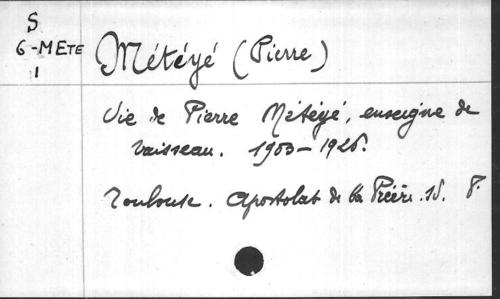 S
6-METE
1
Météyé (Pierre)
Vie de Pierre Météyé, enseigne de
vaisseau. 1903-1926.
Toulouse. Apostolat de la Prière. sd. 8.